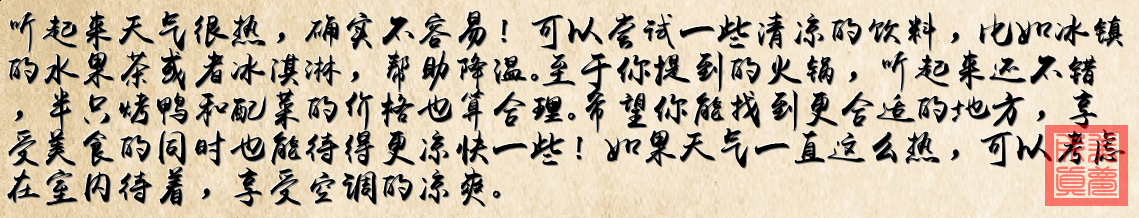 听起来天气很热，确实不容易！可以尝试一些清凉的饮料，比如冰镇
的水果茶或者冰淇淋，帮助降温。至于你提到的火锅，听起来还不错
，半只烤鸭和配菜的价格也算合理。希望你能找到更合适的地方，享
受美食的同时也能待得更凉快一些！如果天气一直这么热，可以考虑
在室内待着，享受空调的凉爽。